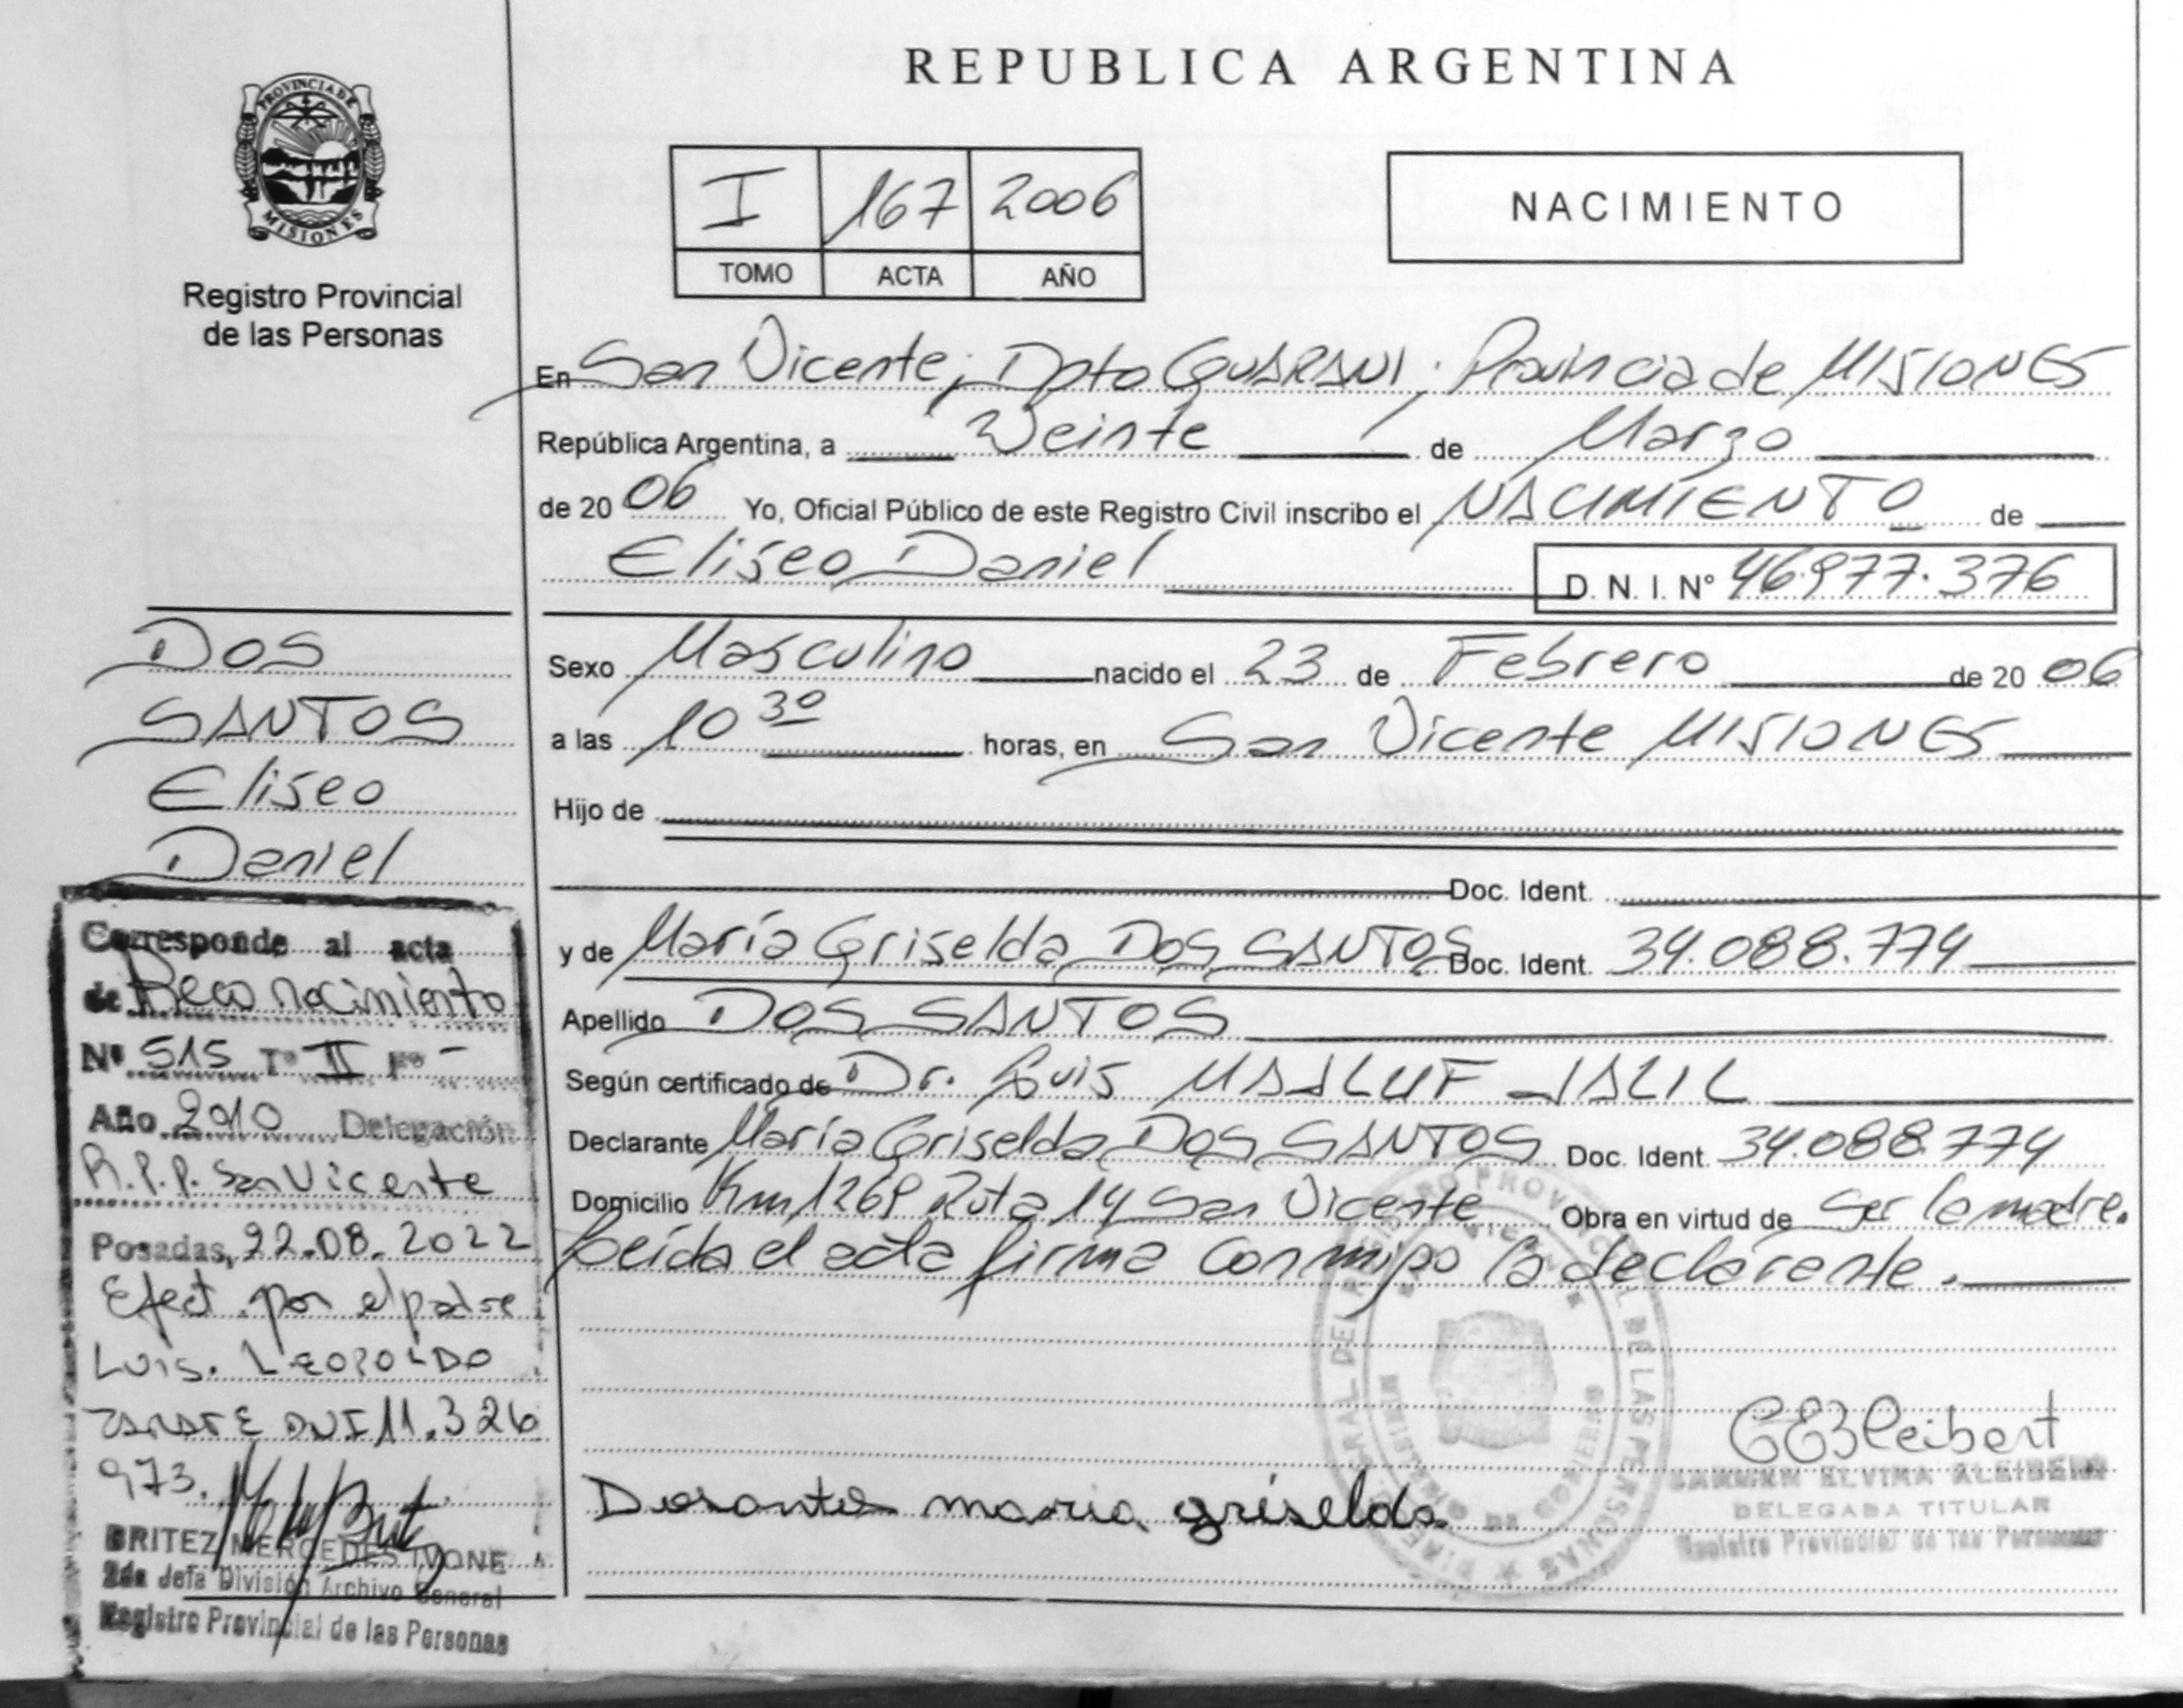 REPUBLICA ARGENTINA
PROVINCIA DE
MISIONES
Registro Provincial
de las Personas
I 167 2006
TOMO ACTA AÑO
NACIMIENTO
En San Vicente; Dpto GUARANI. Provincia de MISIONES
República Argentina, a Veinte de Marzo
de 20 06 Yo, Oficial Público de este Registro Civil inscribo el NACIMIENTO de
Eliseo Daniel D. N. I. N° 46.977.376
Sexo Masculino nacido el 23 de Febrero de 20 06
a las 10 30 horas, en San Vicente MISIONES
Hijo de
Doc. Ident.
y de María Griselda DOS SANTOS Doc. Ident. 34.088.774
Apellido DOS SANTOS
Según certificado de Dr. Luis MAALUF JALIL
Declarante María Griselda DOS SANTOS Doc. Ident. 34.088.774
Domicilio Km 1269 Ruta 14 San Vicente Obra en virtud de Ser la madre.
Leída el acta firma conmigo la declarante.
Dosantos maria griselda
DELEGADA TITULAR
Registro Provincial de las Personas
DOS
SANTOS
Eliseo
Daniel
Corresponde al acta
de Reconocimiento
N° 515 T° II F° -
Año 2010 Delegación
R.P.P. San Vicente
Posadas, 22.08.2022
Efect. por el padre
LUIS. LEOPOLDO
ZARATE DNI 11.326
973.
BRITEZ MERCEDES IVONE
2da Jefa División Archivo General
Registro Provincial de las Personas